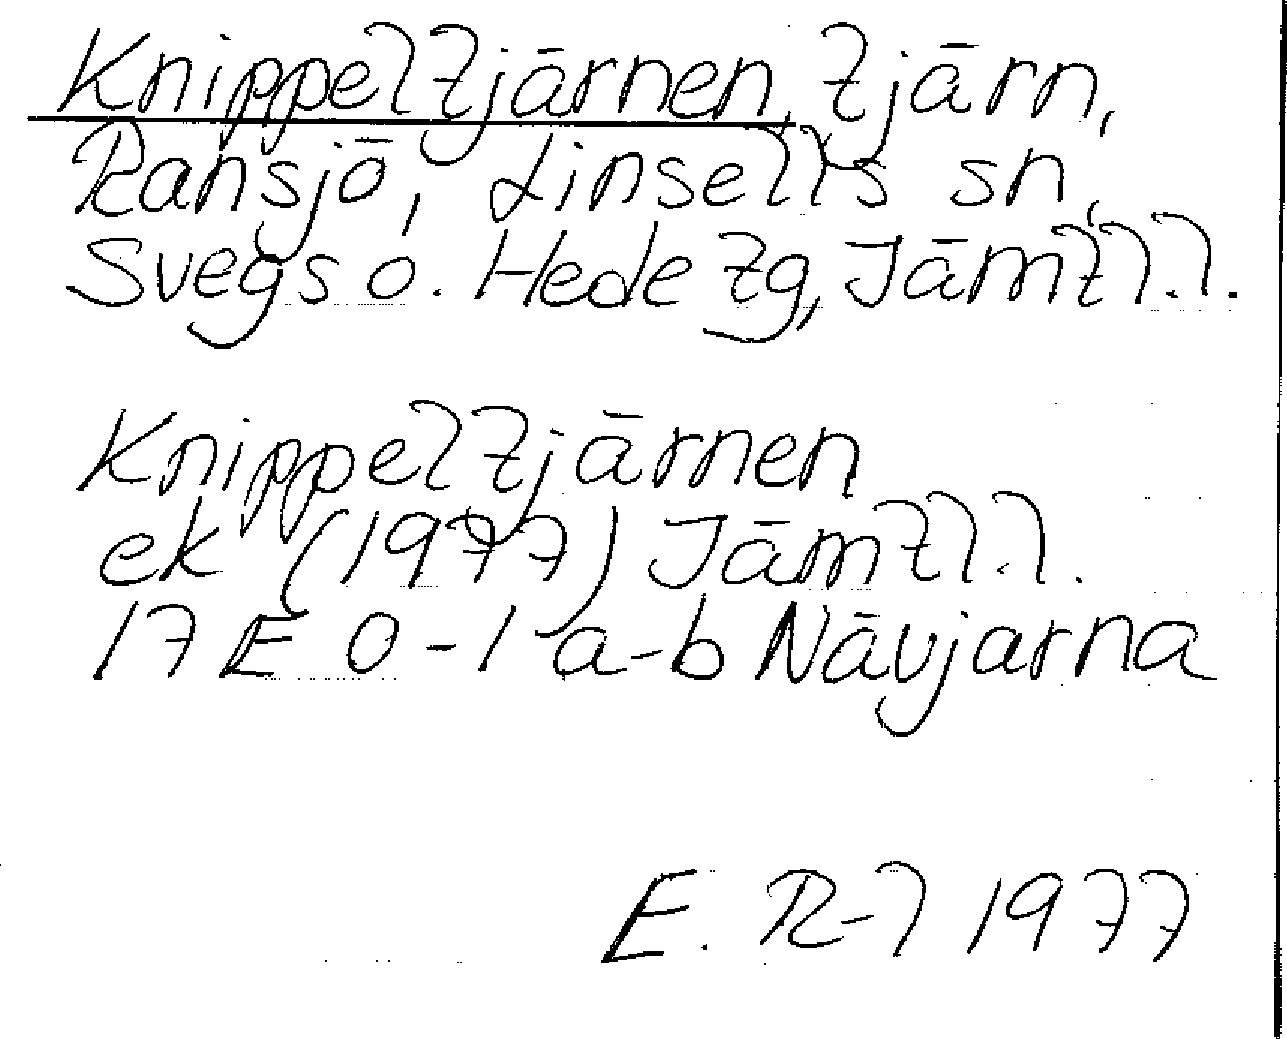 Knippeltjärnen, tjärn,
Ransjö, Linsells sn,
Svegs o. Hede tg, Jämtl.l.
Knippeltjärnen
ek (1977) Jämtl.l.
17E 0-1 a-b Nävjarna
E. R-l 1977